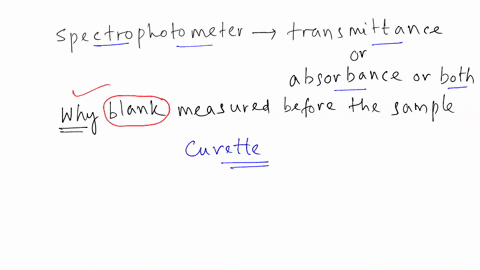 spectrophotometer → transmittance
or
absorbance or both
Why blank measured before the sample
Curette